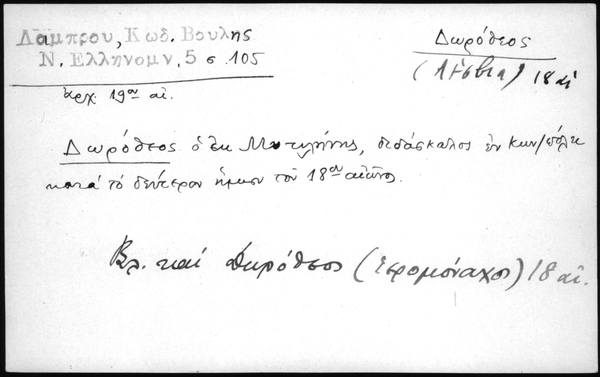 Λάμπρου, Κωδ. Βουλης
Ν. Ελληνομν, 5 σ. 105
ἀρχ. 19ου αἰ.
Δωρόθεος
(Λέσβια) 18 αἰ
Δωρόθεος ὁ ἐκ Μυτιλήνης, διδάσκαλος ἐν Κων/πόλει
κατά τό δεύτερον ἥμισυ τοῦ 18ου αἰῶνος.
Βλ. καί Δωρόθεος (Ἱερομόναχος) 18 αἰ.